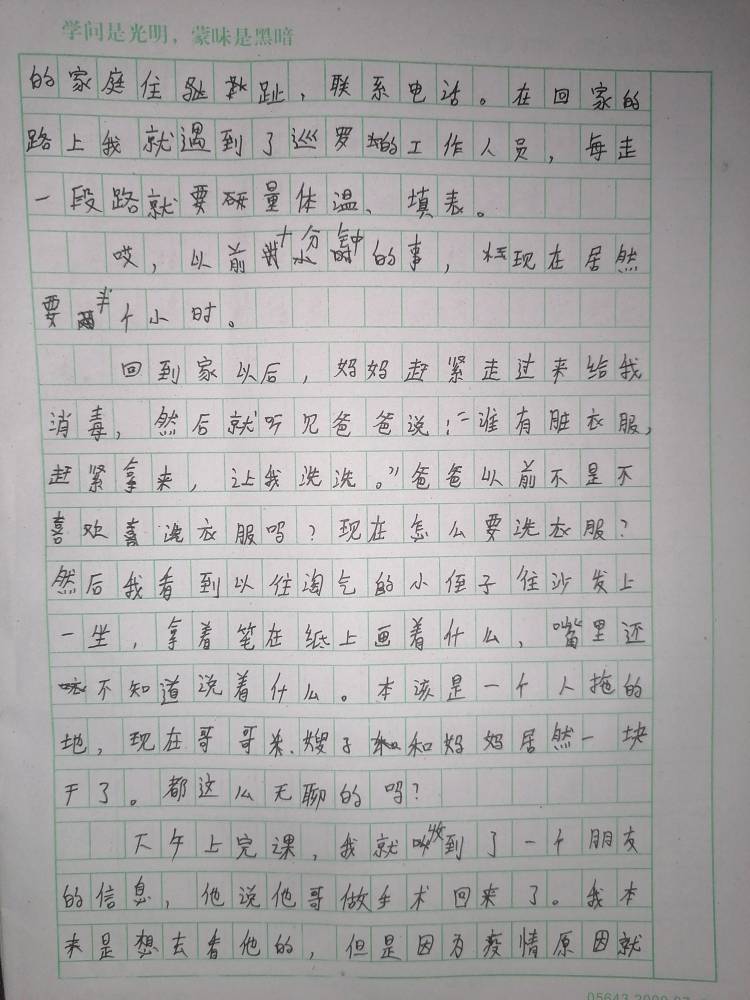 学问是光明，蒙昧是黑暗
的家庭住趾，联系电话。在回家的
路上我就遇到了巡罗的工作人员，每走
一段路就要研量体温、填表。
哎，以前十分钟的事，现在居然
要半个小时。
回到家以后，妈妈赶紧走过来给我
消毒，然后就听见爸爸说："谁有脏衣服，
赶紧拿来，让我洗洗。"爸爸以前不是不
喜欢喜洗衣服吗？现在怎么要洗衣服？
然后我看到以住淘气的小侄子住沙发上
一坐，拿着笔在纸上画着什么，嘴里还
不知道说着什么。本该是一个人拖的
地，现在哥哥、嫂子和妈妈居然一块
干了。都这么无聊的吗？
下午上完课，我就收到了一个朋友
的信息，他说他哥做手术回来了。我本
来是想去看他的，但是因为疫情原因就